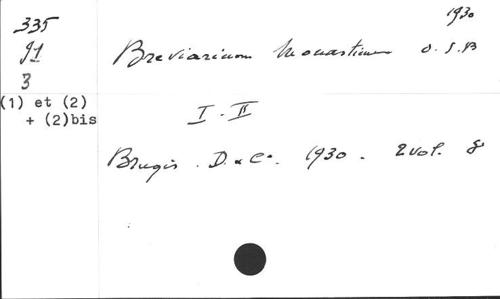 1930
335
91
3
(1) et (2)
+ (2)bis
Breviarium Monasticum O.S.B
I - II
Brugis. D. & Co. 1930 - 2 vol. 8°